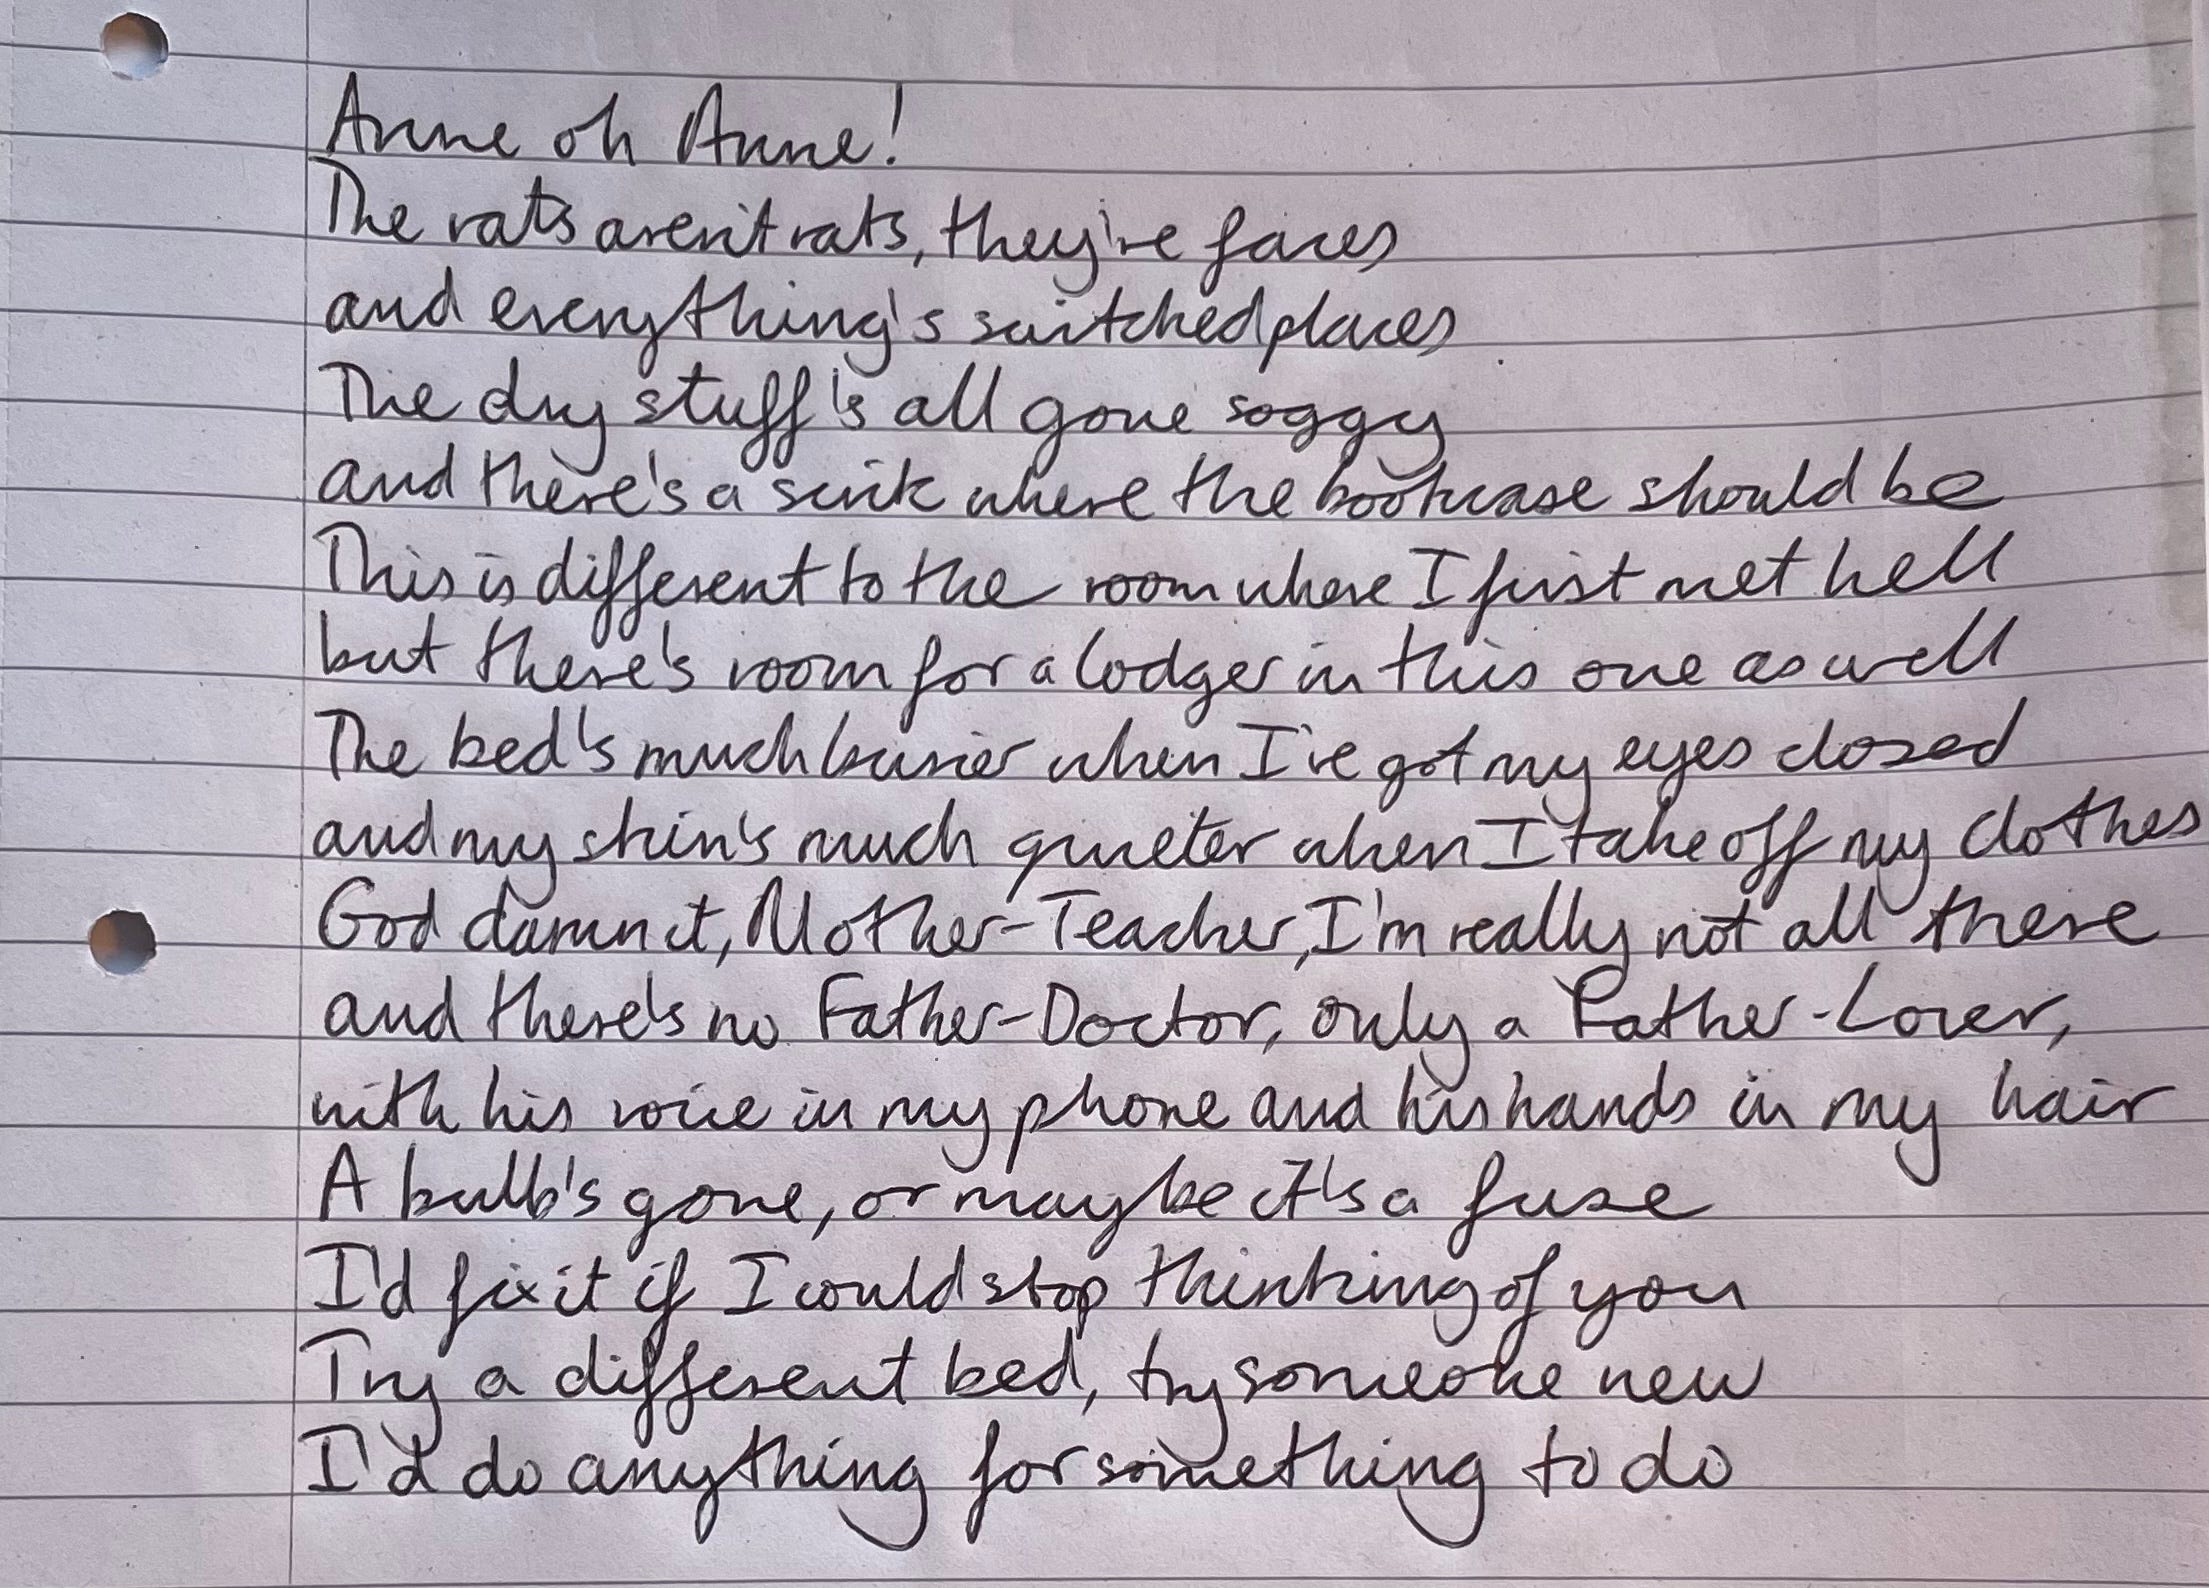 Anne oh Anne!
The rats aren't rats, they're faces
and everything's switched places
The dry stuff's all gone soggy
and there's a sink where the bookcase should be
This is different to the room where I first met hell
but there's room for a lodger in this one as well
The bed's much busier when I've got my eyes closed
and my skin's much quieter when I take off my clothes
God damn it, Mother-Teacher, I'm really not all there
and there's no Father-Doctor, only a Father-Lover,
with his voice in my phone and his hands in my hair
A bulb's gone, or maybe it's a fuse
I'd fix it if I could stop thinking of you
Try a different bed, try someone new
I'd do anything for something to do